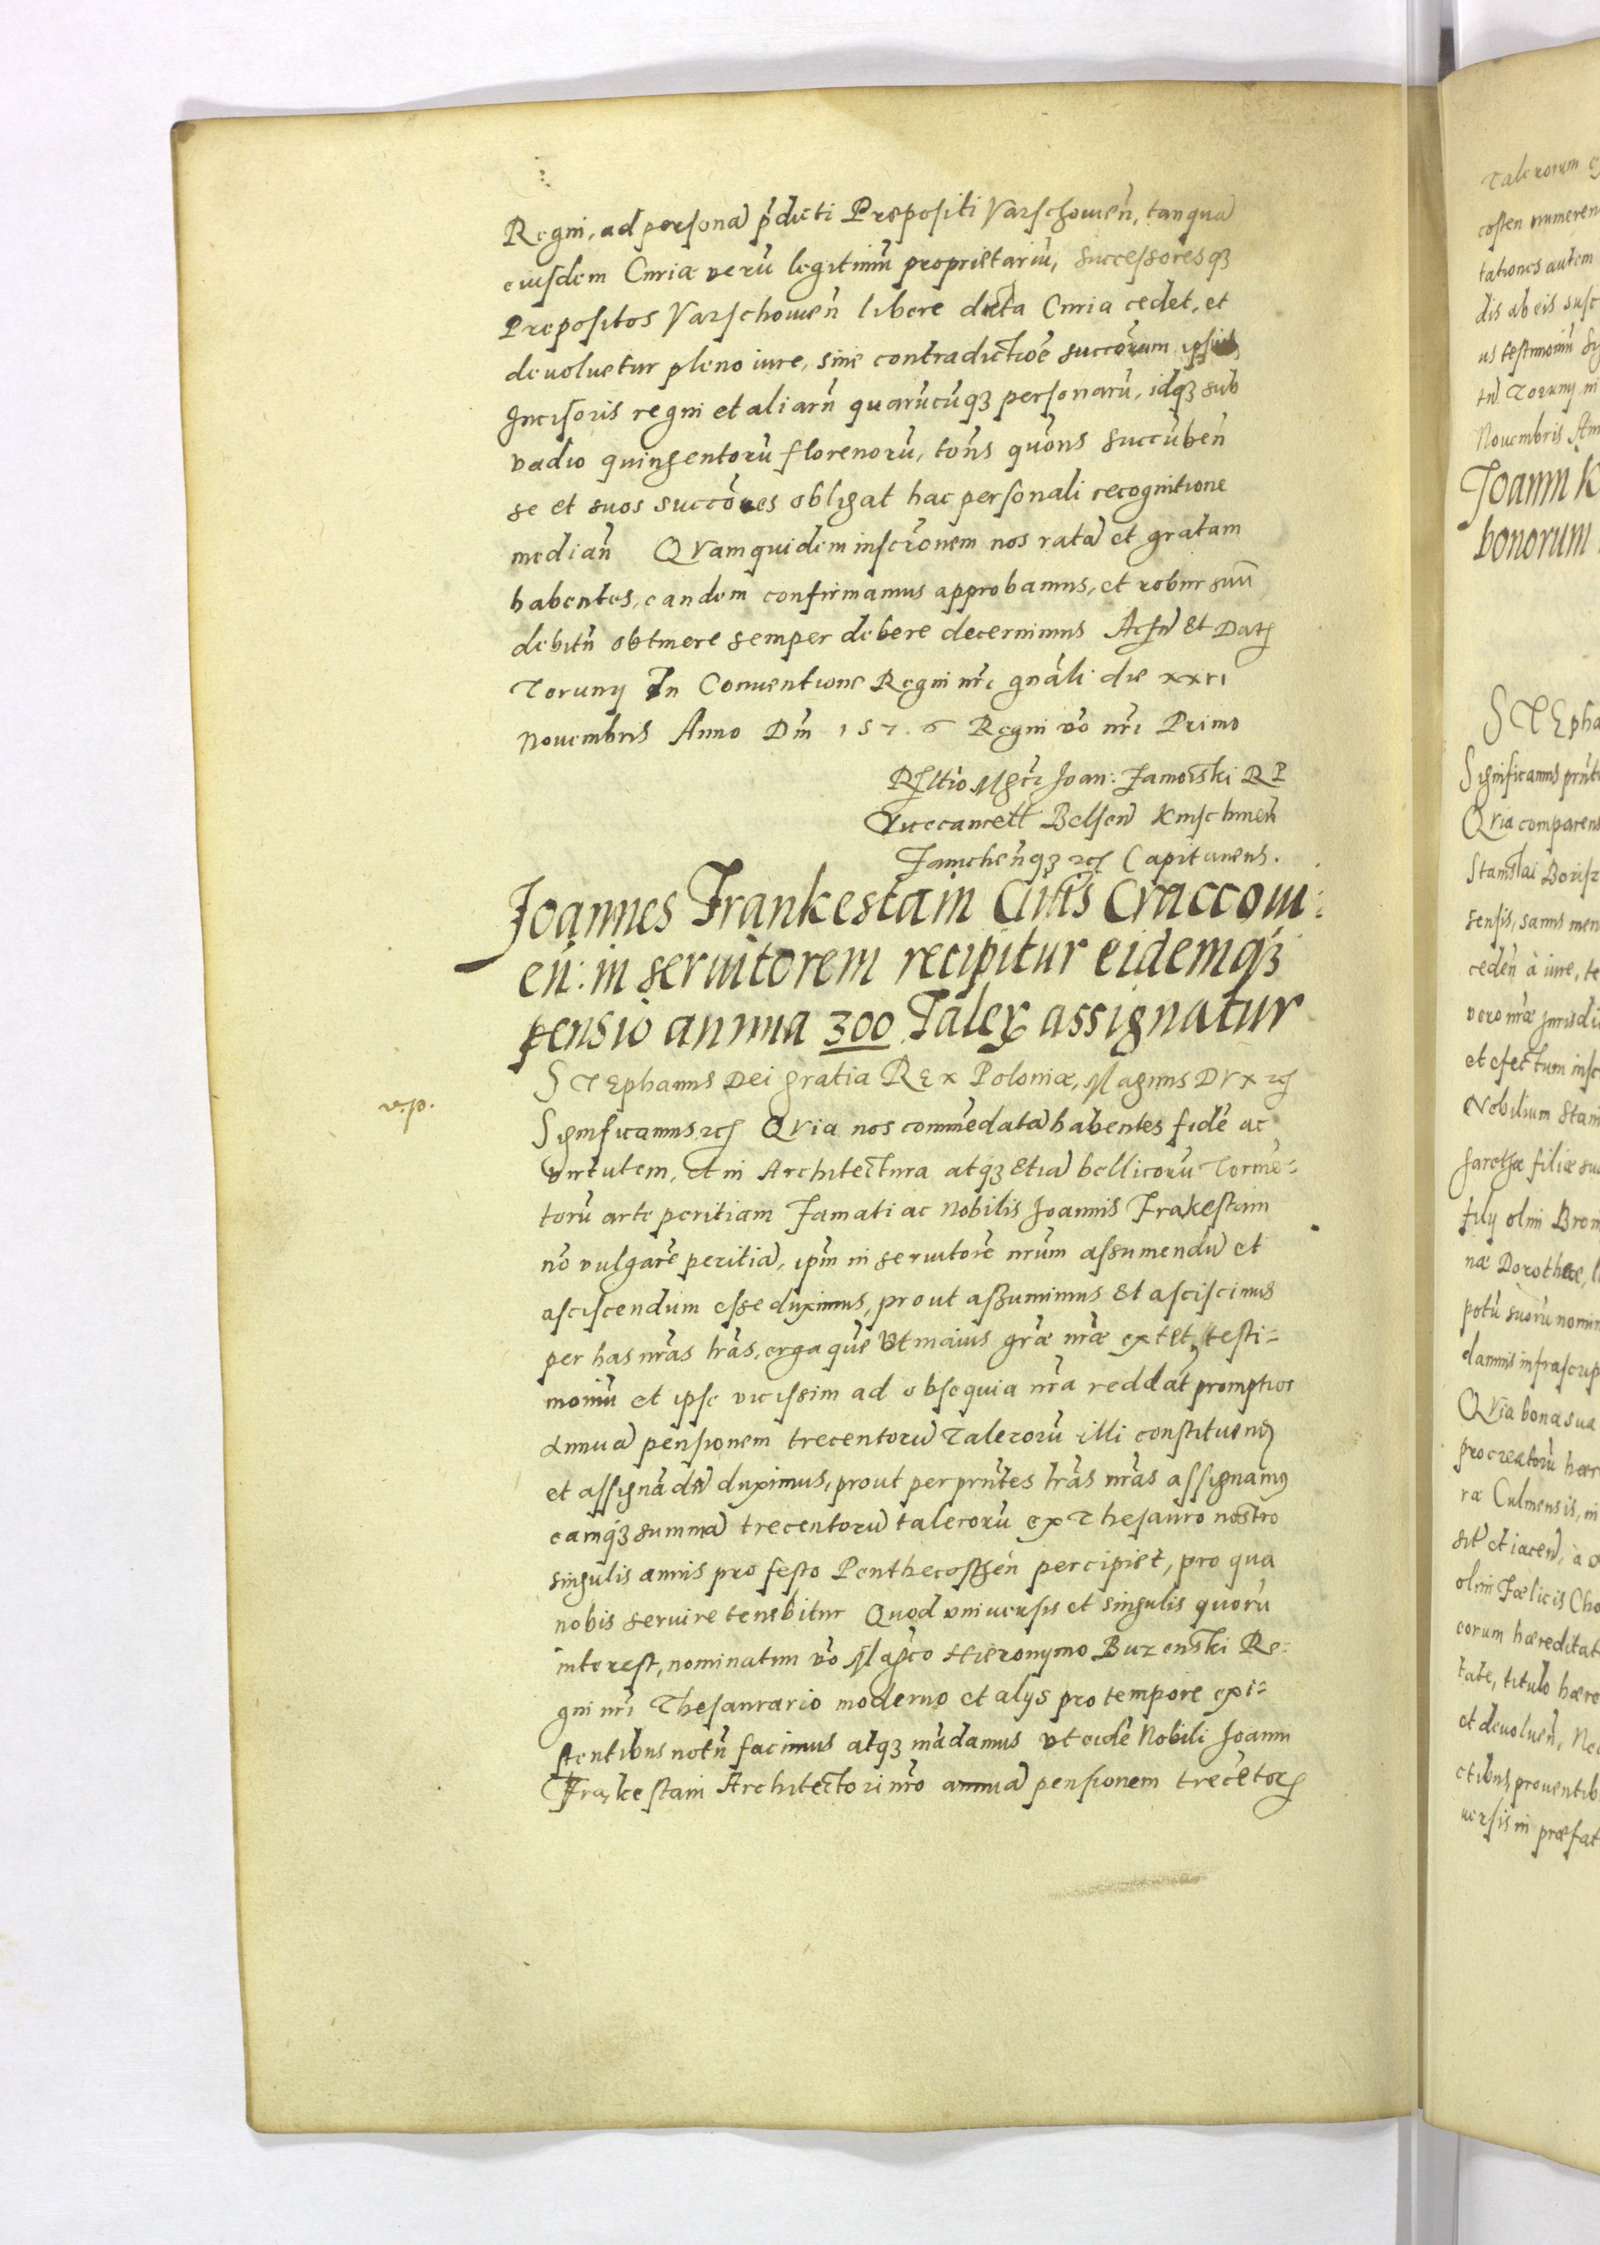 Regni, ad personã p̃dicti Præpositi Varschouieñ, tanquã
eiusdem Curiæ verũ legitimũ proprietariũ, successoresqꝫ
Præpositos Varschouieñ libere dicta Curia cedet, et
deuoluetur pleno iure, sine contradictiõe succõrum ipsius
Incisoris regni et aliarũ quarũcũqꝫ personarũ, idqꝫ sub
vadio quingentorũ florenorũ, tõns quõns succubeñ
se et suos succõres obligat hac personali recognitione
medianñ Quam quidem inscrõnem nos ratã et gratam
habentes, eandem confirmamus approbamus, et robur suũ
debitũ obtinere semper debere decernimus Actũ et Datꝭ
Toruny In Conuentione Regni nr̃i gnãli die xxvi
Nouembris Anno Dñi 1576 Regni võ nr̃i Primo
Rl̃tio Mgci Ioan: Zamoiski RP
Vicecancell Belseñ Knischineñ
Zamcheñqꝫ ꝛcꝭ Capitanens.
Joannes Frankestain Ciuis Craccoui:
eñ: in seruitorem recipitur eidemqꝫ
pensio annua 300 Taleꝝ assignatur
v.p.
STEphanus Dei gratia REx Poloniæ, Magnus DVx ꝛcꝭ
Significamus ꝛcꝭ QVia nos commẽdatã habentes fidẽ ac
virtutem, et in Architectura atqꝫ etiã bellicorũ Tormẽ=
torũ arte peritiam Famati ac Nobilis Joannis Frãkestain
nõ vulgarẽ peritiã, ip̃m in seruitorẽ nr̃um assumendũ et
asciscendum esse duximus, prout assumimus Et asciscimus
per has nr̃as lr̃as, erga quẽ Vt maius gr̃æ nr̃æ extet testi=
moniũ et ipse vicissim ad obsequia nr̃a reddat̃ promptior
Annuã pensionem trecentorũ Talerorũ illi constituendꝭ
et assignãdã duximus, prout per prñtes lr̃as nr̃as assignamꝰ
eamqꝫ summã trecentorũ talerorũ ex Thesauro nostro
singulis annis pro festo Penthecosteñ percipiet, pro qua
nobis seruire tenebitur Quod vniuersis et singulis quorũ
interest, nominatim võ Magco Hieronymo Buzenski Re=
gni nr̃i Thesaurario moderno et alys pro tempore exi=
stentibus notũ facimus atqꝫ mãdamus vt eidẽ Nobili Joanni
Frãkestain Architectori nr̃o annuã pensionem trecẽtoꝝ
Talerorum
costen numeren
tationes autem
dis ab eis susc
us testimoniũ
Toruny in
Nouembris
Joanni K
bonorum
STEpha
Significamus prñt
QVia comparens
Stanislai Borisz
sensis, sanus men
cedeñ à iure, te
vero nr̃æ jurisdi
et efectum insc
Nobilium Stani
garethæ filiæ su
fily olim Broni
næ Dorotheæ, l
potũ suorũ nomin
damnis infrascrip
QVia bona sua
procreatorũ hær
ræ Culmensis, in
sit et iaceñ, à
olim Fœlicis Cho
eorum hæreditat
tate, titulo hære
et deuolueñ, Nec
ctibus prouentib
uersis in præfat